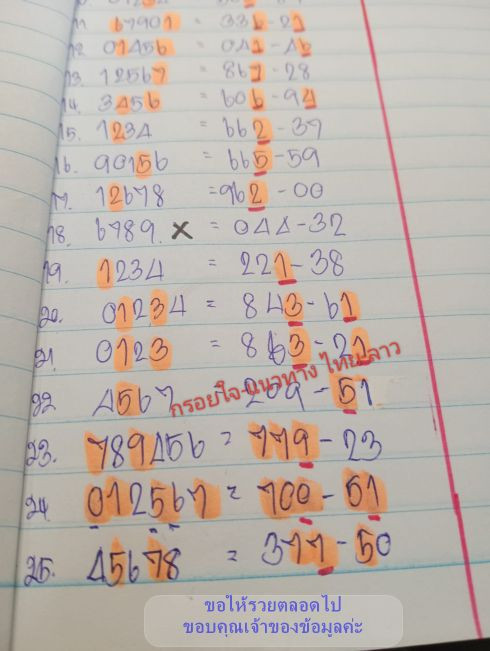 11. 67901 = 336-21
12. 01456 = 041-46
13. 12567 = 867-28
14. 3456 = 606-94
15. 1234 = 662-37
16. 90156 = 665-59
17. 12678 = 962-00
18. 6789. x = 044-32
19. 1234 = 221-38
20. 01234 = 843-61
21. 0123 = 863-21
กรอยใจ แนวทาง ไทย ลาว
22 4567 209-51
23. 789456 = 779-23
24 012567 = 700-51
25. 45678 = 377-50
ขอให้รวยตลอดไป
ขอบคุณเจ้าของข้อมูลค่ะ